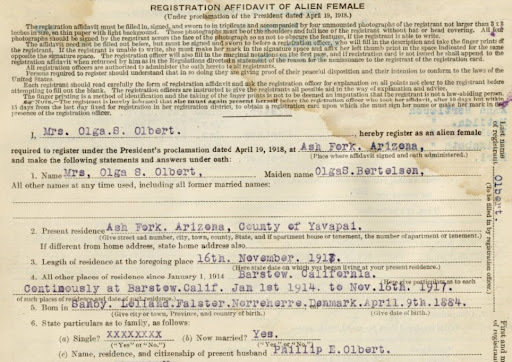 REGISTRATION AFFIDAVIT OF ALIEN FEMALE
(Under proclamation of the President dated April 19, 1918.)
The registration affidavit must be filled in, signed, and sworn to in triplicate and accompanied by four unmounted photographs of the registrant not larger than 3 x 3
inches in size, on thin paper with light background. These photographs must be of the shoulders and full face of the registrant without hat or head covering. All
photographs should be signed by the registrant across the face of the photograph so as not to obscure the features, if the registrant is able to write.
The affidavit need not be filled out before, but must be signed and sworn to before a registration officer, who will fill in
of the registrant. If the registrant is unable to write, she must make her mark in the signature space and affix her left thumb print in the space indicated for the
opposite the signature space. The registration officer will give the date in the
registration affidavit when returned by him as in the Regulations directed a statement of the reason for the nonissuance to the registrant of the registration card.
All registration officers are authorized to administer the oath herein to all registrants.
Persons required to register should understand that in so doing they are giving proof of their peaceful disposition and their intention to conform to the laws of the
United States.
Each registrant should read carefully the form of registration affidavit and ask the registration officer for explanation on all points not clear to the registrant before
attempting to fill out the blank. The registration officers are instructed to give the registrants all possible aid in the way of explanation and advice.
The finger printing is a method of identification and the taking of the finger prints is not to be deemed an imputation that the registrant is not a law-abiding person.
NOTE.—The registrant is hereby informed that she must again present herself before the registration officer who took her affidavit, after 10 days but within
15 days from the last day fixed for registration in her registration district, to obtain a registration card upon which she must sign her name or make her mark in
presence of the registration officer.
I, Mrs. Olga.S. Olbert. hereby register as an alien female
required to register under the President's proclamation dated April 19, 1918, at Ash Fork. Arizona,
(Place where affidavit signed and oath administered.)
and make the following statements and answers under oath:
1. Name Mrs, Olga S. Olbert, Maiden name OlgaS.Bertelsen,
All other names at any time used, including all former married names:
2. Present residence Ash Fork. Arizona, County of Yavapai.
(Give street and number, city, town, county, State, and if apartment house or tenement, the number of apartment or tenement.)
If different from home address, state home address also
3. Length of residence at the foregoing place 16th. November. 1917.
(Here state date on which you began living at your present residence.)
4. All other places of residence since January 1, 1914 Barstow. California.
(Here give particulars as to each
Continously at Barstow.Calif. Jan 1st 1914. to Nov.16th. 1917.
of such places of residence and dates of such residence.)
5. Born in Lolland.Falster.Norreherre.Denmark.April.9th.1884.
(Give city or town, Province, and country of birth.) (Give date of birth.)
6. State particulars as to family, as follows:
(a) Single? xxxxxxxx (b) Now married? Yes.
("Yes" or "No.") ("Yes" or "No.")
(c) Name, residence, and citizenship of present husband Phillip E.Olbert.
Last name
of registrant.
Olbert.
(To be filled in by registration officer.)
First and
of registrant